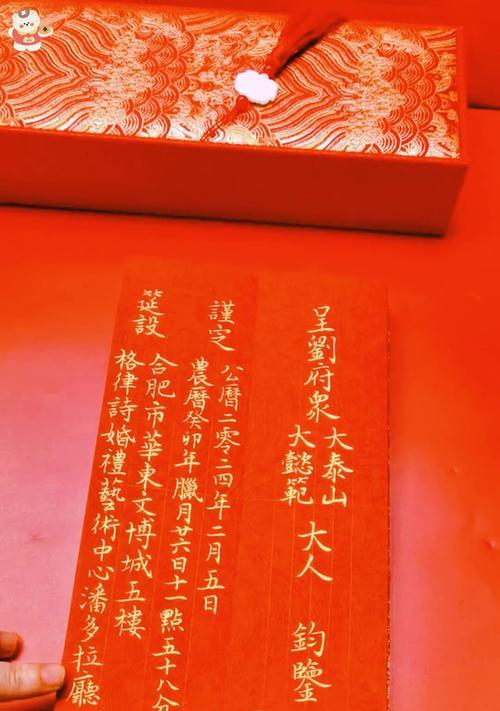 呈劉府衆大泰山大懿範大人 鈞鑒
謹定 公曆二零二四年二月五日
農曆癸卯年臘月廿六日十一點五十八分
筵設 合肥市華東文博城五樓
格律詩婚禮藝術中心潘多拉廳